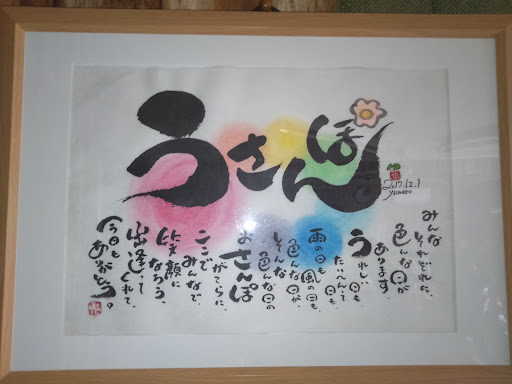 うさんぽ
2017.12.1
yumeto
みんな
それぞれに、
色んな日が
あります。
うれしい日も
たいへんな日も
雨の日も風の日も、
色んな日が、
そんな
色んな日の
おさんぽ
がてらに、
ここで
みんなで
笑顔に
なろう。
出逢って
くれて、
今日も
ありがとう。